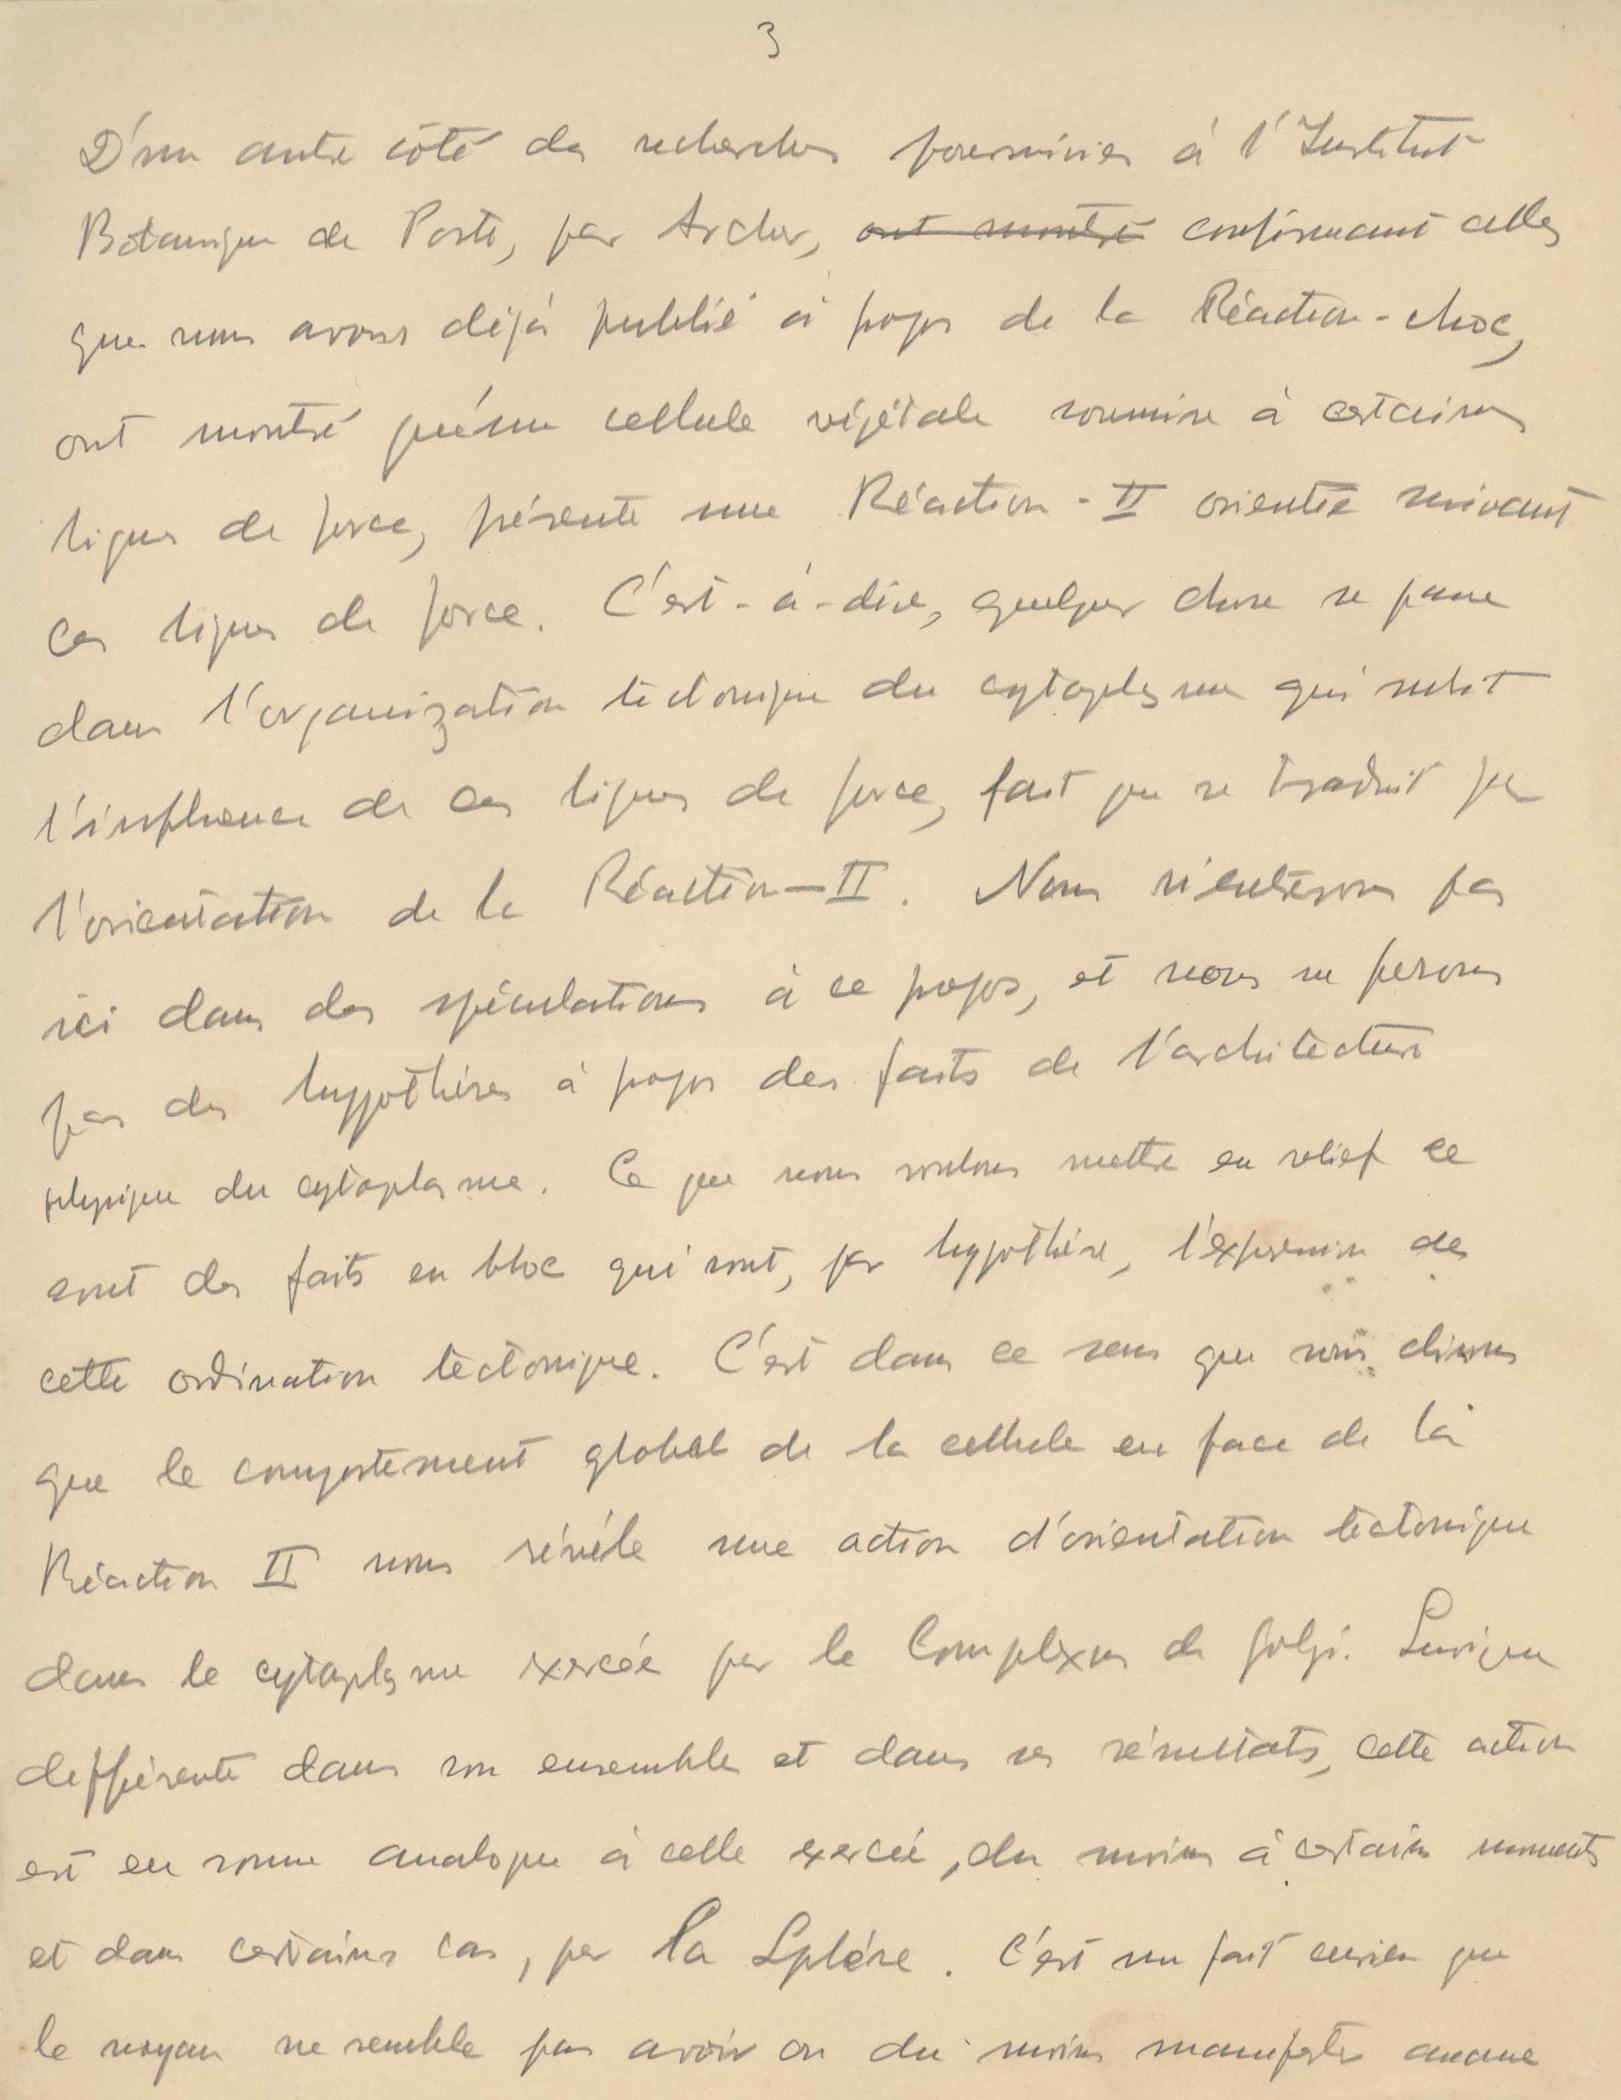 3
D'un autre côté des recherches poursuivies à l'Institut
Botanique de Porto, par Archer, ont montré confirmant celles
que nous avons déjà publié à propos de la Réaction-choc,
ont montré qu'une cellule végétale soumise à certaines
lignes de force, présente une Réaction-II orientée suivant
ces lignes de force. C'est-à-dire, quelque chose se passe
dans l'organization téctonique du cytoplasme qui subit
l'influence de ces lignes de force, fait que se traduit par
l'orientation de la Réaction-II. Nous n'entrerons pas
ici dans des spéculations à ce propos, et nous ne ferons
pas des hyppothèses à propos des faits de l'architecture
physique du cytoplasme. Ce que nous voulons mettre en relief ce
sont des faits en bloc qui sont, par hyppothèse, l'expression de
cette ordination téctonique. C'est dans ce sens que nous disons
que le comportement global de la cellule en face de la
Réaction II nous révèle une action d'orientation téctonique
dans le cytoplasme exercée par le Complexus de Golgi. Quoique
differente dans son ensemble et dans ses résultats, cette action
est en somme analogue à celle exercée, du moins à certains moments
et dans certains cas, par la Sphère. C'est un fait curieux que
le noyau ne semble pas avoir ou du moins manifester aucune